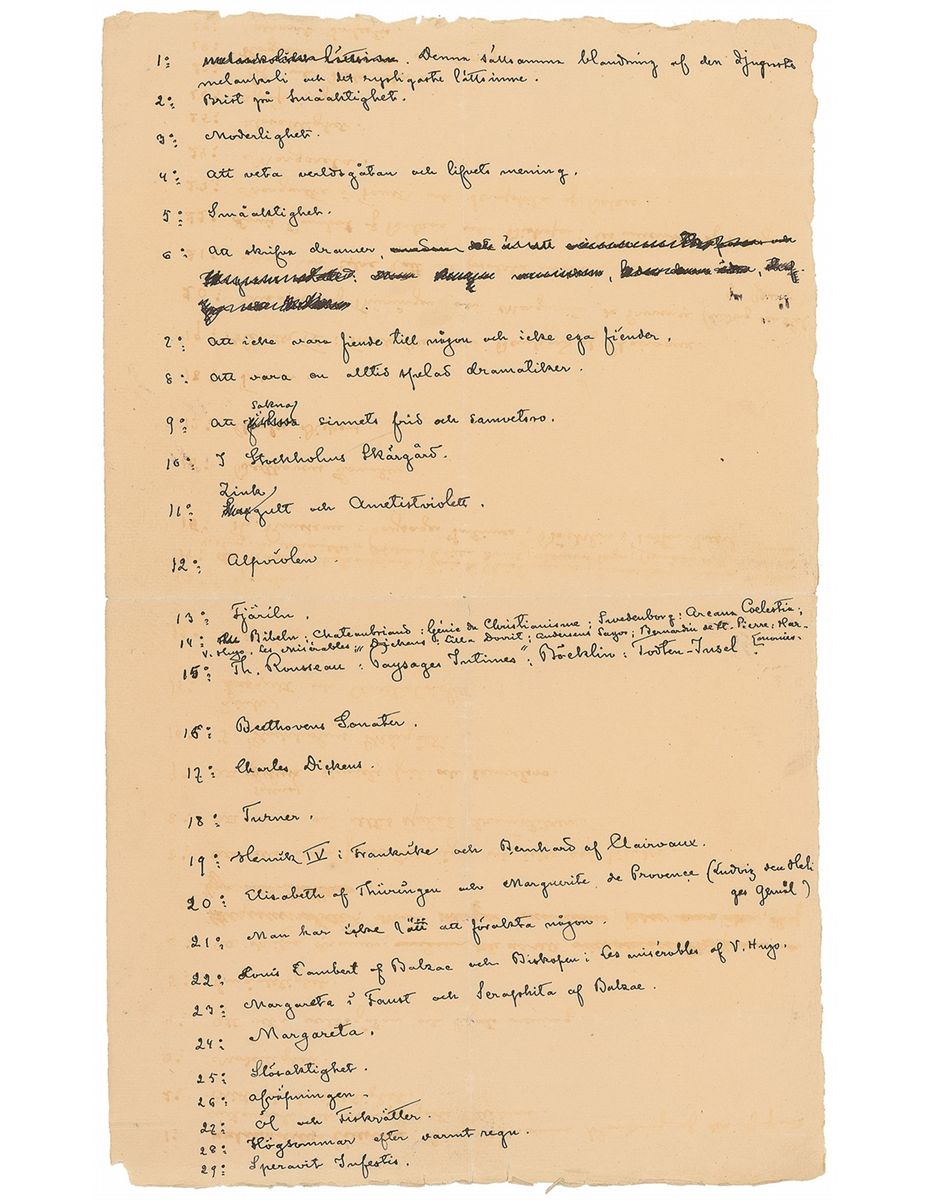 1º: Denna sällsamma blandning af den djupaste
melankoli och det rysligaste lättsinne.
2º: Brist på Småaktighet.
3º: Moderlighet.
4º: Att veta verldsgåtan och lifvets mening.
5º: Småaktighet.
6º: Att skrifva dramer,
7º: Att icke vara fiende till någon och icke ega fiender.
8º: Att vara en alltid spelad dramatiker.
sakna
9º: Att sinnets frid och samvetsro.
10º: I Stockholms Skärgård.
Zink
11º: gult och Ametistviolett.
12º: Alpviolen.
13º: Fjäriln.
14º: Bibeln; Chateaubriand: Génie du Christianisme; Swedenborg: Arcana Coelestia;
V. Hugo, Les Misérables; Dickens: Lilla Dorrit; Andersens Sagor; Bernardin de St. Pierre: Har-
monies.
15º: Th. Rousseau: "Paysages Intimes"; Böcklin: Todten-Insel.
16º: Beethovens Sonater.
17º: Charles Dickens.
18º: Turner.
19º: Henrik IV i Frankrike och Bernhard af Clairvaux.
20º: Elisabeth af Thüringen och Marguerite de Provence (Ludvig den Heli
ges Gemål)
21º: Man har icke lätt att förakta någon.
22º: Louis Lambert af Balzac och Biskopen i Les misérables af V. Hugo.
23º: Margareta i Faust och Seraphita af Balzac.
24: Margareta.
25º: Slösaktighet.
26º: Afväpningen.
27º: Öl och Fiskrätter.
28º: Högsommar efter varmt regn.
29º: Speravit Infestis.